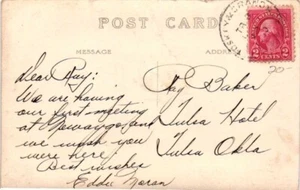 POST CARD
MESSAGE
Dear Ray:
We are having
our first meeting
at
we wish you
were here
Best wishes
Eddie Goran
Ray Baker
Tulsa Hotel
Tulsa Okla
2 CENTS 2
20